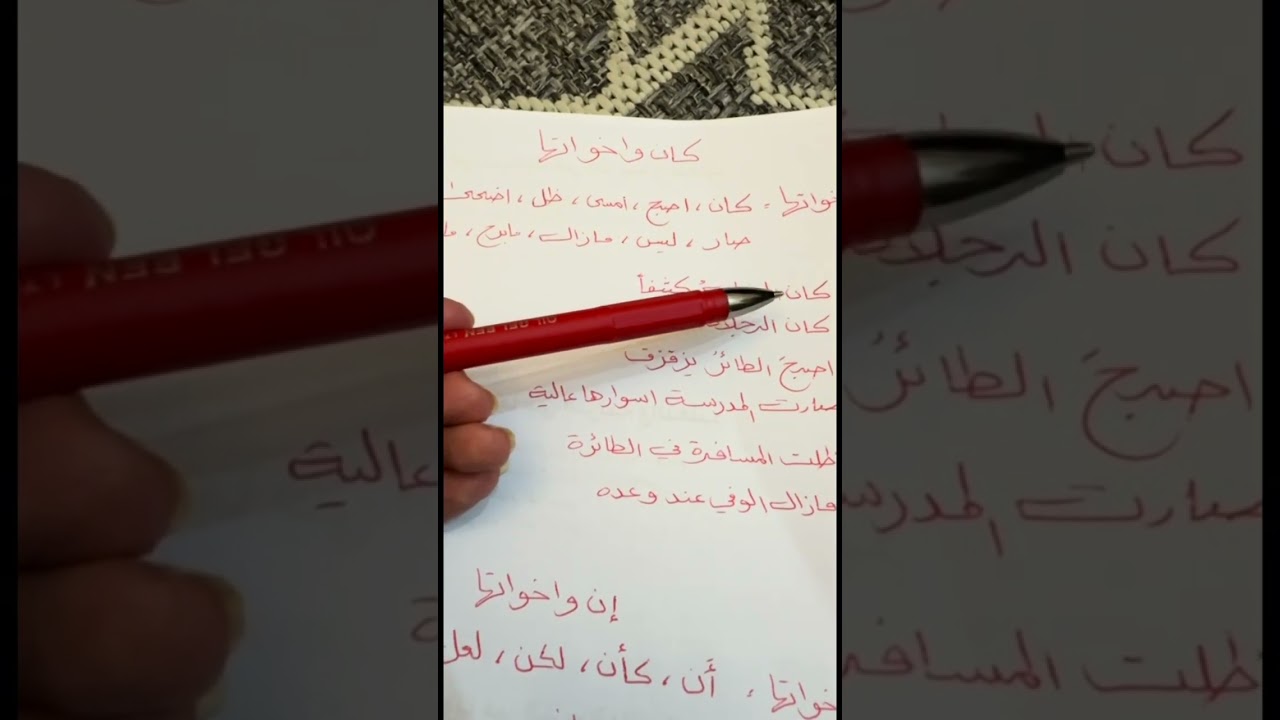 كان واخواتها
خواتها : كان ، اصبح ، امسى ، ظل ، اضحى
صار ، ليس ، مازال ، مابرح ، ما
كان كثيفاً
كان الرجلان
اصبحَ الطائرُ يزقزق
صارت المدرسة اسوارها عالية
ظلت المسافرة في الطائرة
مازال الوفي عند وعده
إن واخواتها
خواتها : أن ، كأن ، لكن ، لعل